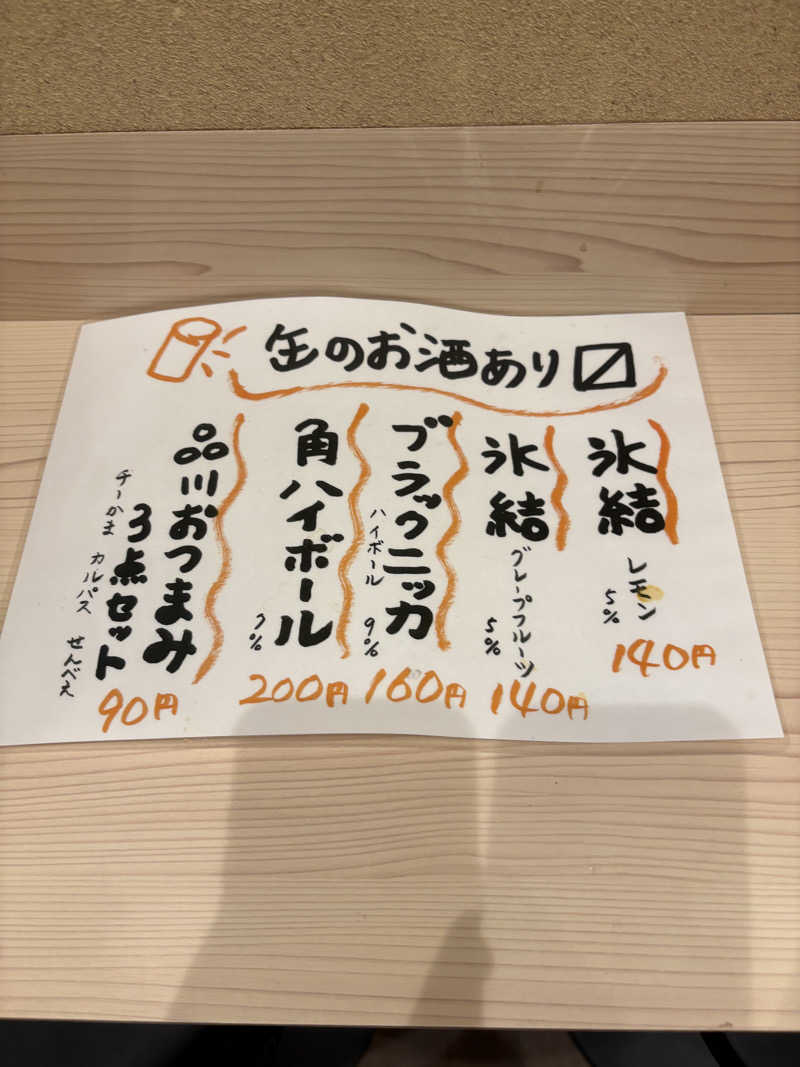 缶のお酒あり〼
氷結
レモン
5%
140円
氷結
グレープフルーツ
5%
140円
ブラックニッカ
ハイボール
9%
160円
角ハイボール
7%
200円
品川おつまみ
3点セット
チーかま カルパス せんべえ
90円